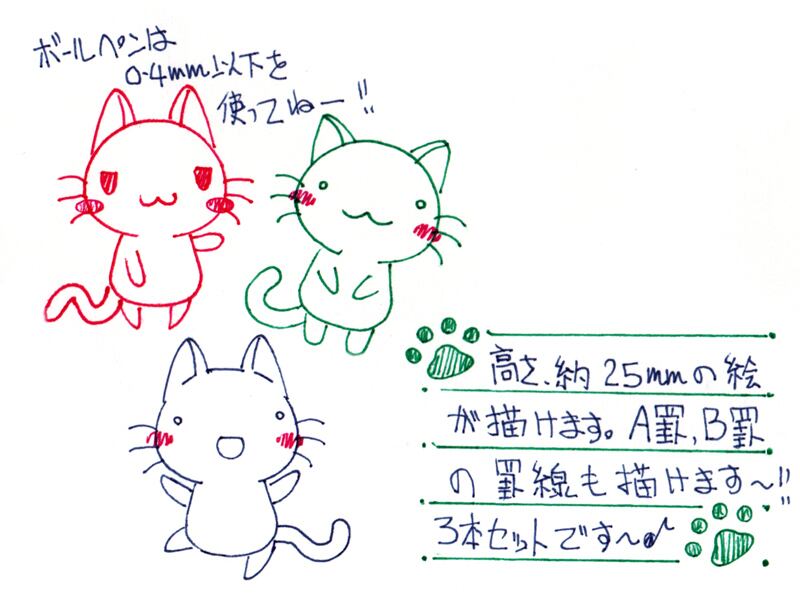 ボールペンは
0.4mm以下を
使ってねー!!
高さ、約25mmの絵
が描けます。A罫,B罫
の罫線も描けます〜!!
3本セットです〜♪